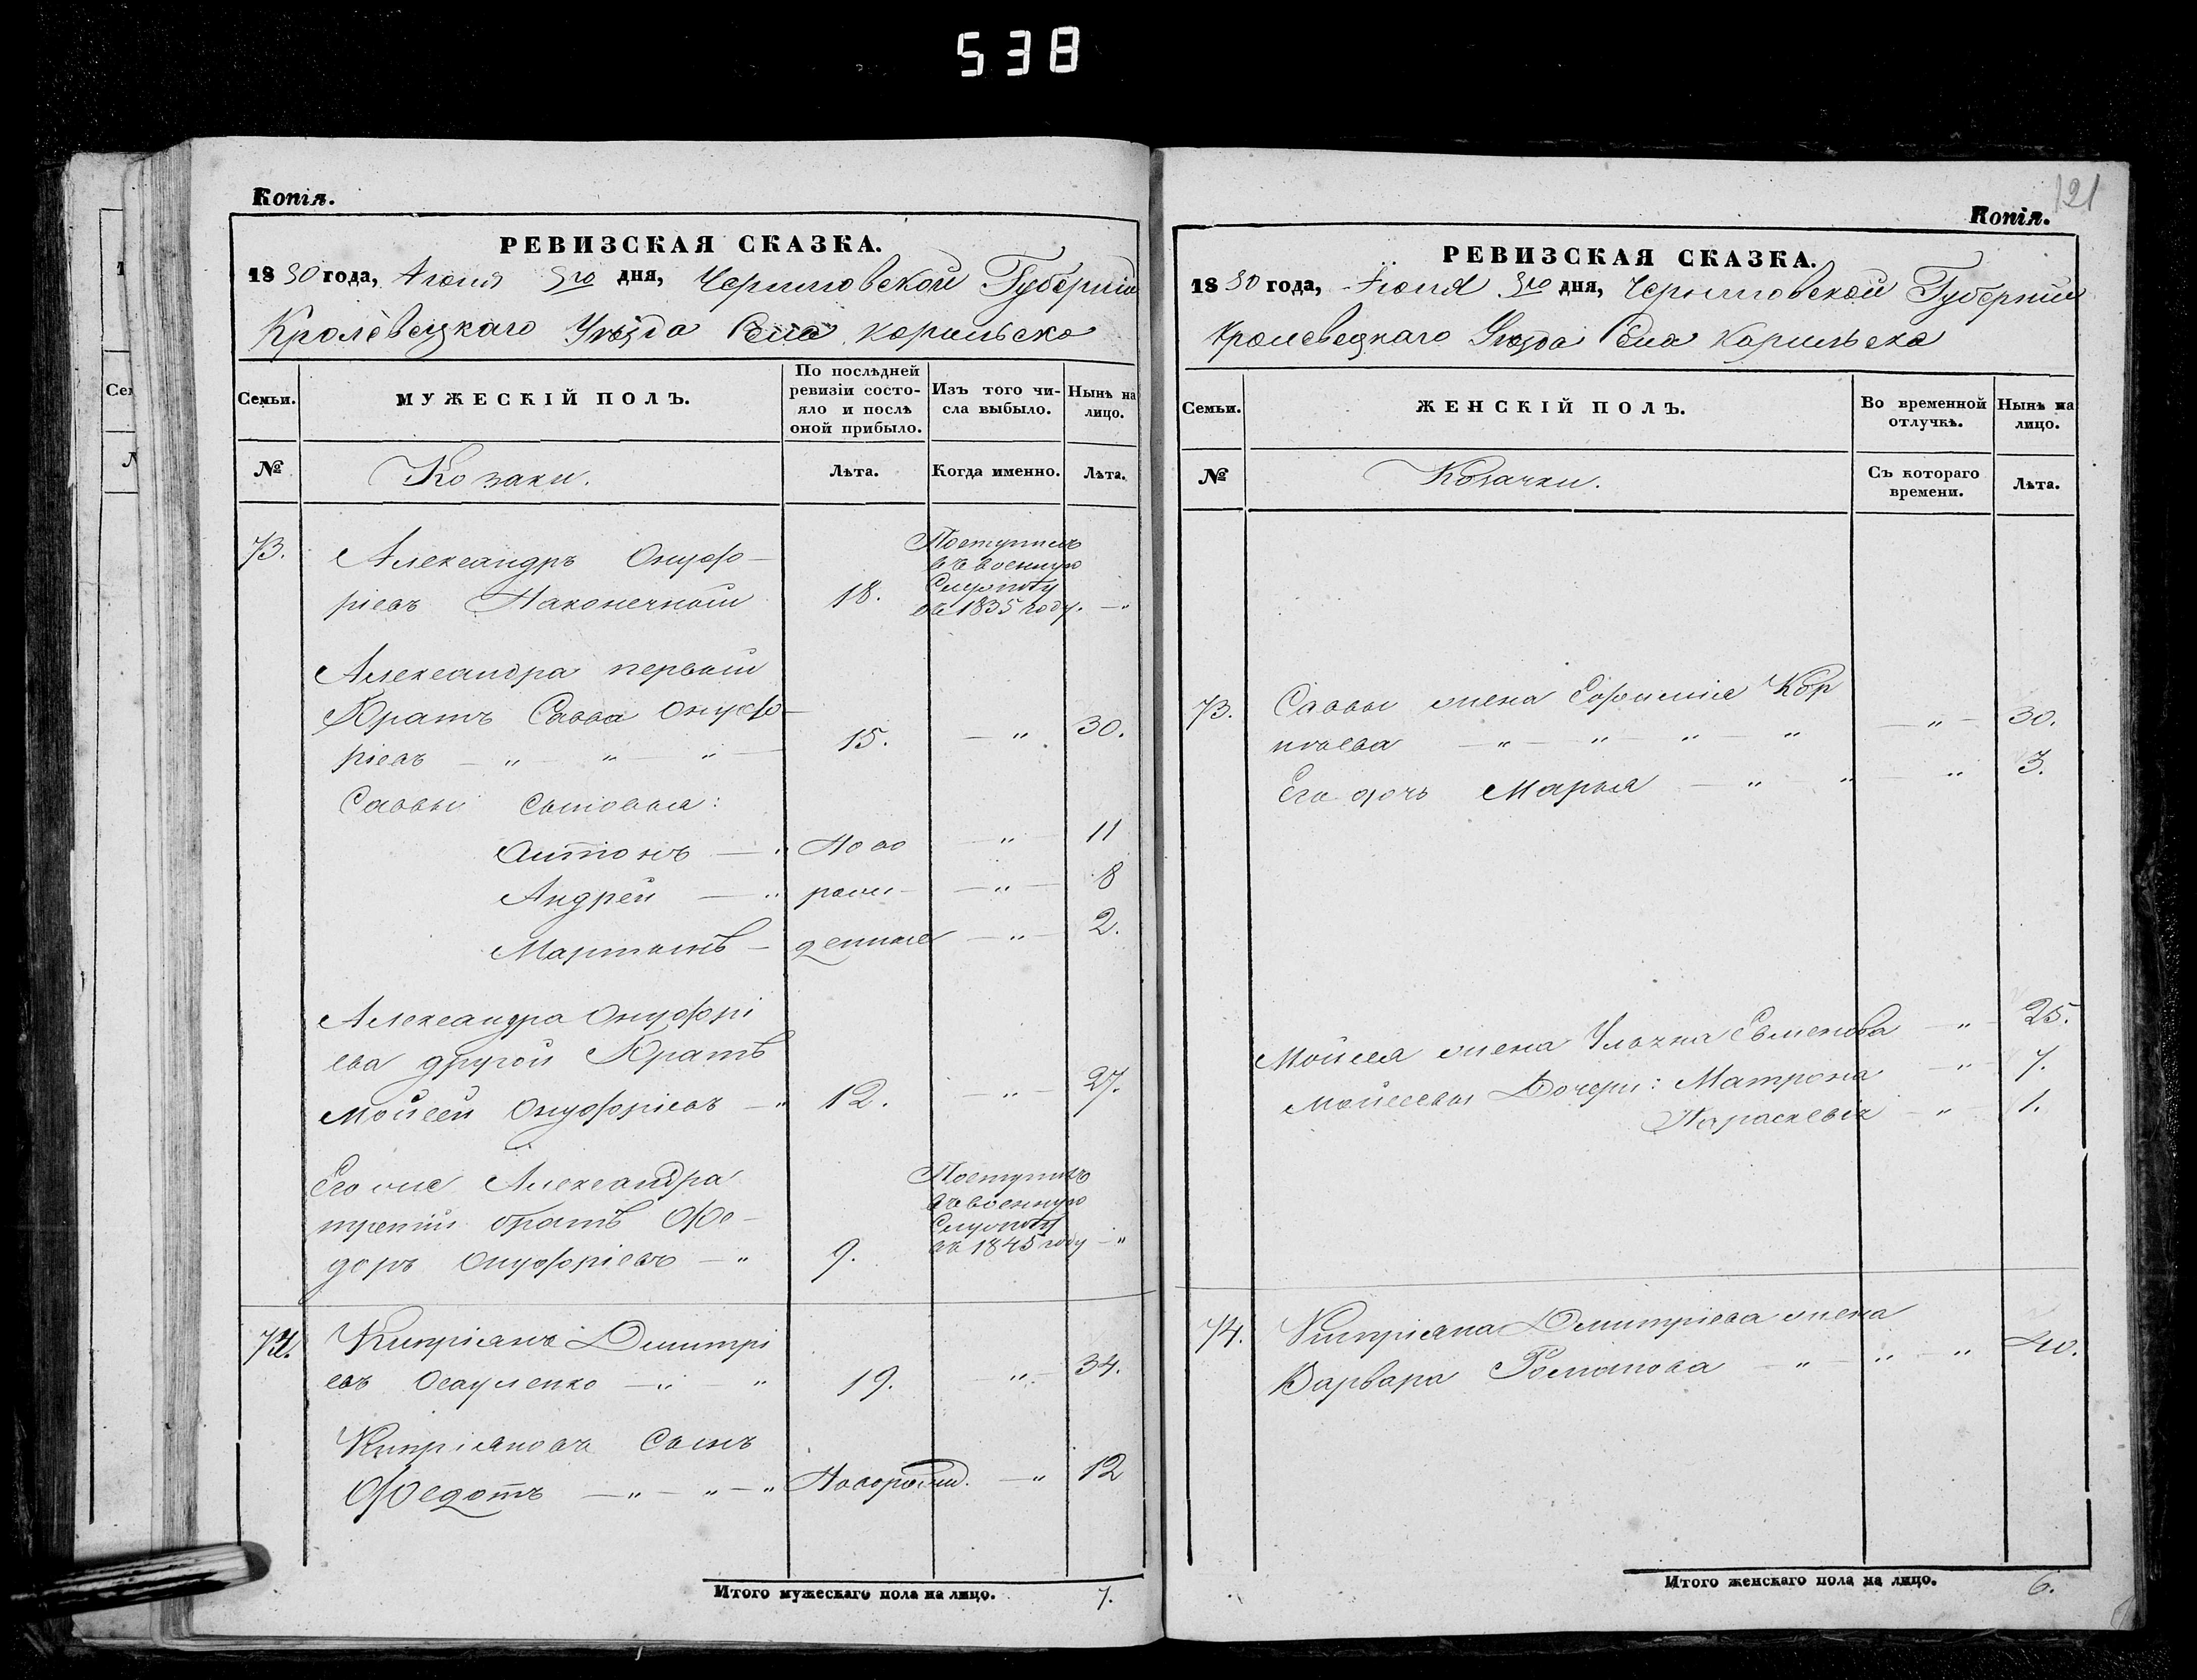 538
Копія.
РЕВИЗСКАЯ СКАЗКА.
1850 года, Іюня 3го дня, Черниговской Губерніи
Кролевецкаго Уѣзда Села Карильска
Семьи.
МУЖЕСКІЙ ПОЛЪ.
По послѣдней
ревизіи состо-
яло и послѣ
оной прибыло.
Изъ того чи-
сла выбыло.
Нынѣ на
лицо.
№
Козаки.
Лѣта.
Когда именно.
Лѣта.
73.
Александръ Онуф-
ріевъ Наконечный
18.
Поступилъ
въ военную
Службу
въ 1835 году. — „
Александра первый
Братъ Савва Онуф-
ріевъ — „ — „ — „ —
15. — „ 30.
Саввы Сыновья:
Антонъ — „ Ново — „ — 11
Андрей — „ рож- — „ — 8
Мартынъ — денные — „ — 2.
Александра Онуфрі
ева другой Братъ
Мойсей Онуфріевъ — „ 12. — „ — 27.
Его же Александра
третій братъ Фе-
доръ Онуфріевъ — „ 9.
Поступилъ
въ военную
Службу
въ 1845 году — „
74.
Кипріанъ Димитрі
евъ Осауленко — „ „ 19. „ — 34.
Кипріановъ Сынъ
Федотъ — „ — „ — „ Новорожд. — „ 12
Итого мужескаго пола на лицо. 7.
121
Копія.
РЕВИЗСКАЯ СКАЗКА.
1850 года, Іюня 3го дня, Черниговской Губерніи
Кролевецкаго Уѣзда Села Карильска
Семьи.
ЖЕНСКІЙ ПОЛЪ.
Во временной
отлучкѣ.
Нынѣ на
лицо.
№
Козачки.
Съ котораго
времени.
Лѣта.
73.
Саввы жена Евфимія Кор
нѣева — „ — „ — „ — „ — „ — 30.
Его дочь Марья — „ — „ — „ 3.
Мойсея жена Ульяна Евменова — „ — 25.
Мойсеевы Дочери: Матрона — „ — 7.
Параскевія — „ — 1.
74.
Кипріана Димитріева жена
Варвара Романова — „ — „ — „ 40.
Итого женскаго пола на лицо. 6.